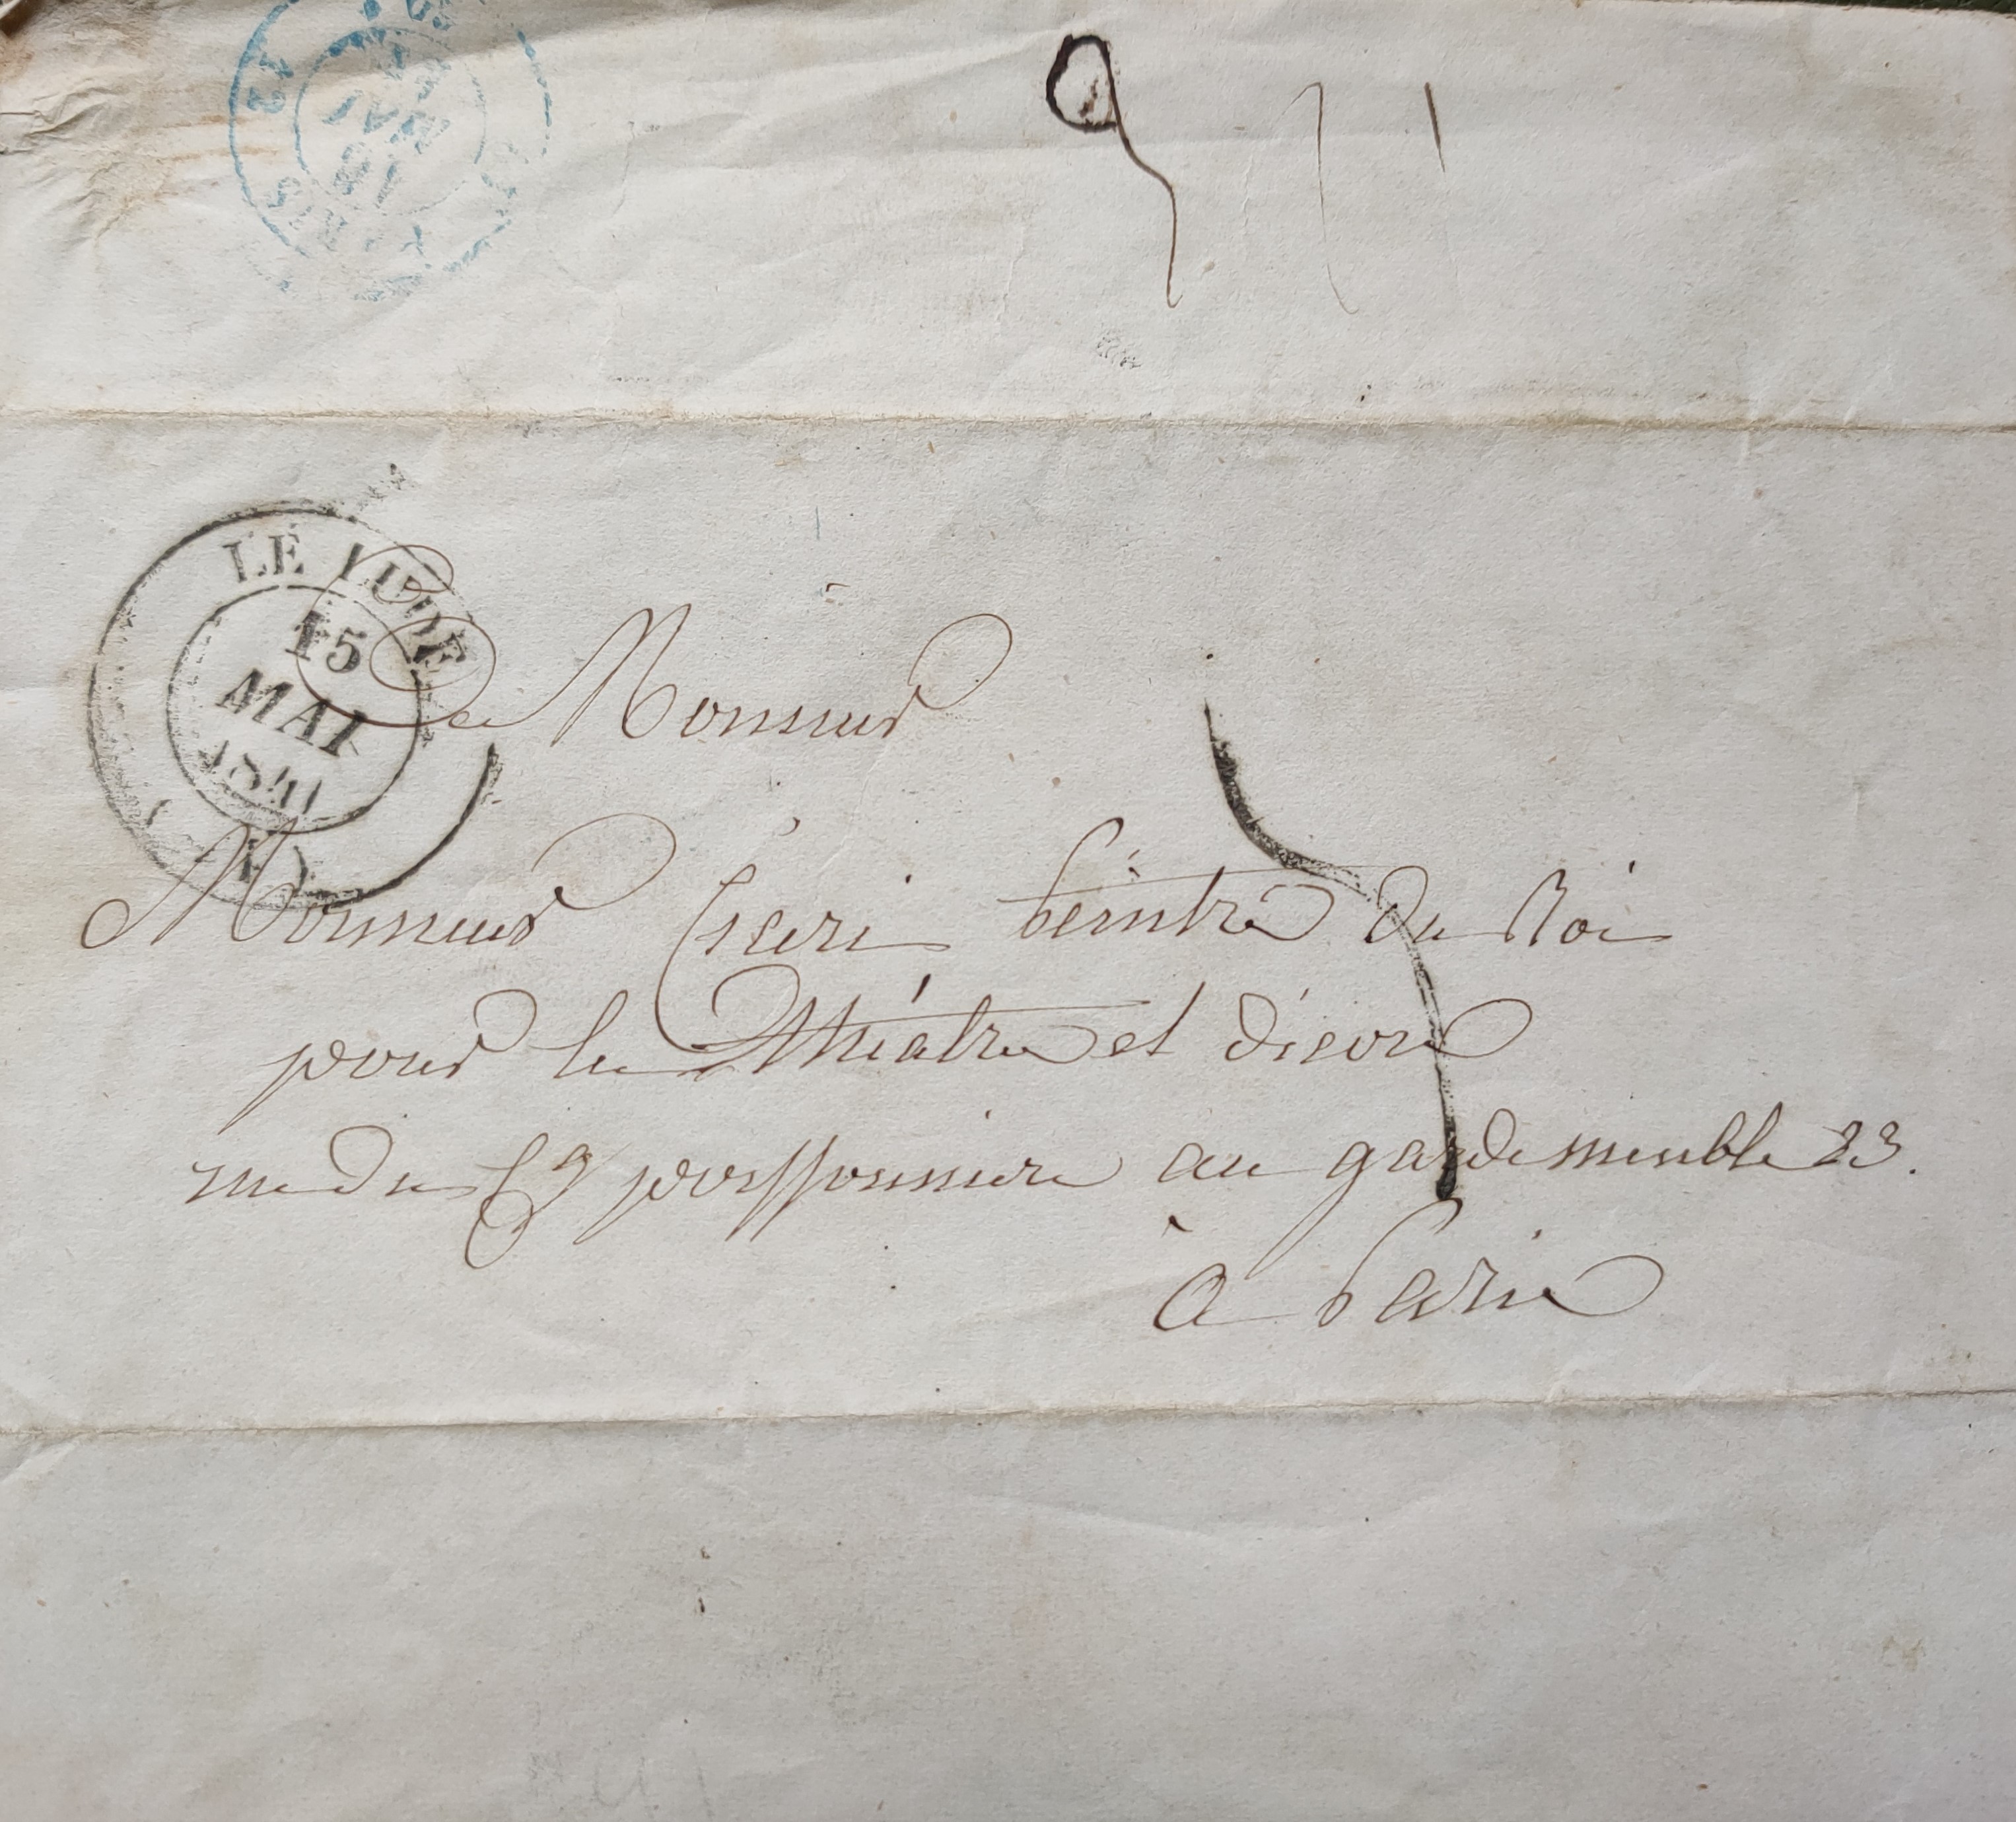 PARIS
16
MAI
LE LUDE
15
MAI
1841
a Monsieur
Monsieur Cicéri peintre du Roi
pour le théâtre et décore
rue du fg poissonniere au gardemeuble 23.
à paris